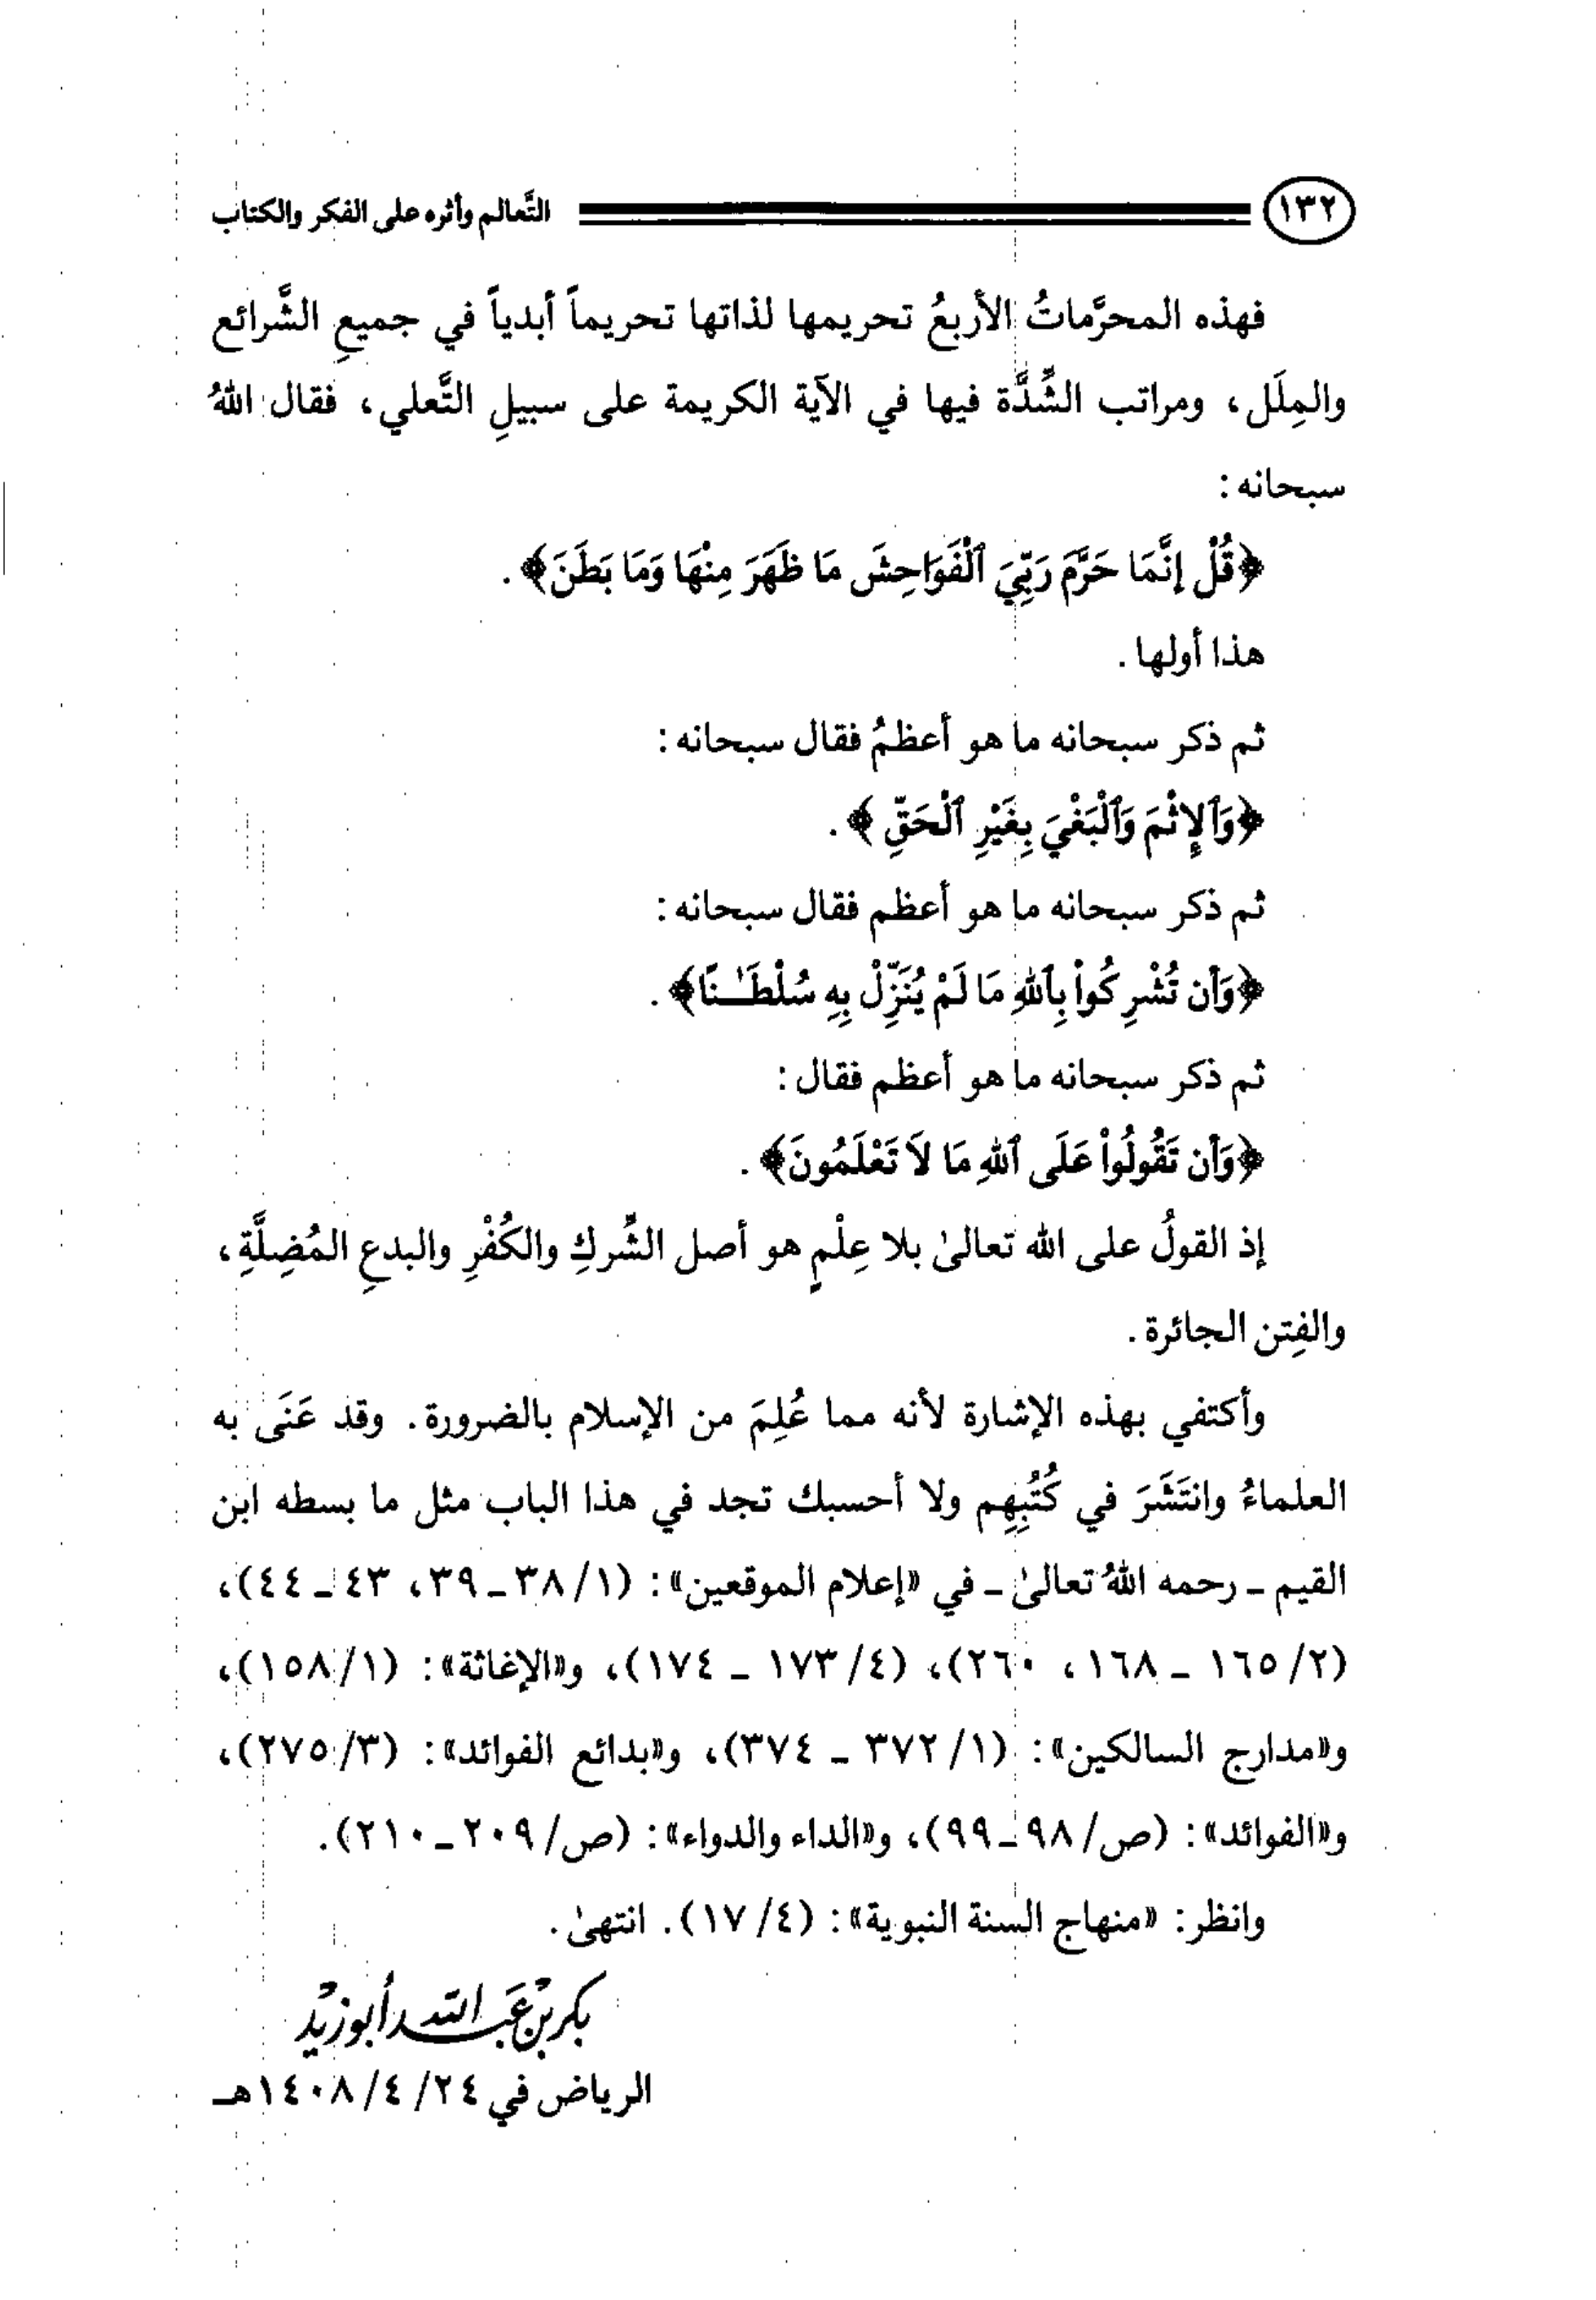 ١٣٢ التَّعالم وأثره على الفكر والكتاب
فهذه المحرَّماتُ الأربعُ تحريمها لذاتها تحريماً أبدياً في جميعِ الشَّرائع
والمِلَل، ومراتب الشِّدَّة فيها في الآية الكريمة على سبيلِ التَّعلي، فقال اللهُ
سبحانه:
﴿قُلْ إِنَّمَا حَرَّمَ رَبِّيَ ٱلْفَوَاحِشَ مَا ظَهَرَ مِنْهَا وَمَا بَطَنَ﴾.
هذا أولها.
ثم ذكر سبحانه ما هو أعظمُ فقال سبحانه:
﴿وَٱلإِثْمَ وَٱلْبَغْيَ بِغَيْرِ ٱلْحَقِّ﴾.
ثم ذكر سبحانه ما هو أعظم فقال سبحانه:
﴿وَأَن تُشْرِكُواْ بِٱللهِ مَا لَمْ يُنَزِّلْ بِهِ سُلْطَـٰنًا﴾.
ثم ذكر سبحانه ما هو أعظم فقال:
﴿وَأَن تَقُولُواْ عَلَى ٱللهِ مَا لاَ تَعْلَمُونَ﴾.
إذ القولُ على الله تعالىٰ بلا عِلْمٍ هو أصل الشِّركِ والكُفْرِ والبدعِ المُضِلَّةِ،
والفِتن الجائرة.
وأكتفي بهذه الإشارة لأنه مما عُلِمَ من الإسلام بالضرورة. وقد عَنَى به
العلماءُ وانتَشَرَ في كُتُبِهِم ولا أحسبك تجد في هذا الباب مثل ما بسطه ابن
القيم ـ رحمه اللهُ تعالىٰ ـ في «إعلام الموقعين»: (١/ ٣٨ ـ ٣٩، ٤٣ ـ ٤٤)،
(٢/ ١٦٥ ـ ١٦٨، ٢٦٠)، (٤/ ١٧٣ ـ ١٧٤)، و«الإغاثة»: (١/ ١٥٨)،
و«مدارج السالكين»: (١/ ٣٧٢ ـ ٣٧٤)، و«بدائع الفوائد»: (٣/ ٢٧٥)،
و«الفوائد»: (ص/ ٩٨ ـ ٩٩)، و«الداء والدواء»: (ص/ ٢٠٩ ـ ٢١٠).
وانظر: «منهاج السنة النبوية»: (٤/ ١٧). انتهىٰ.
بكر بن عَبد الله أبو زيد
الرياض في ٢٤/ ٤/ ١٤٠٨هـ